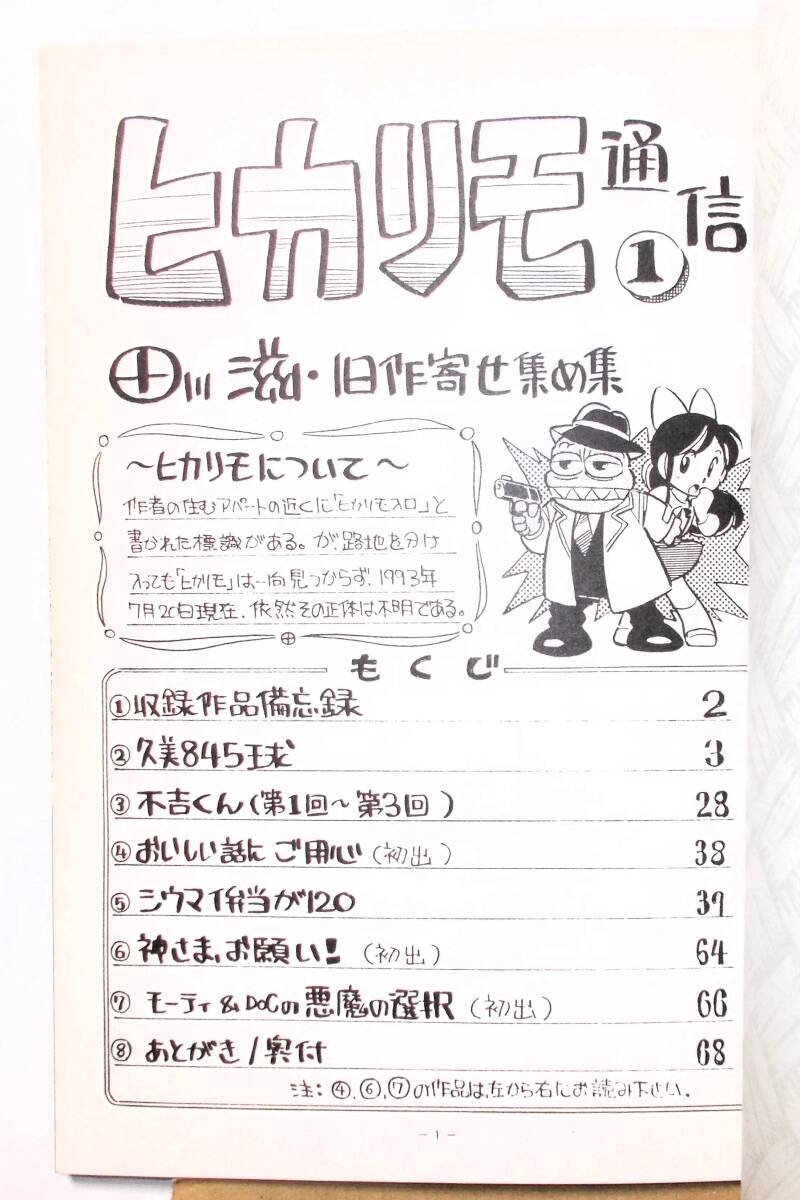 ヒカリモ通信①
⊕川 滋・旧作寄せ集め集
〜ヒカリモについて〜
作者の住むアパートの近くに「ヒカリモ入口」と
書かれた標識がある。が、路地を分け
入っても「ヒカリモ」は一向見つからず、1993年
7月20日現在、依然その正体は不明である。
もくじ
①収録作品備忘録 2
②久美845球 3
③不吉くん(第1回〜第3回) 28
④おいしい話にご用心(初出) 38
⑤シウマイ弁当が120 39
⑥神さま、お願い!(初出) 64
⑦モーティ&DOCの悪魔の選択(初出) 66
⑧あとがき/奥付 68
注:④,⑥,⑦の作品は、左から右にお読み下さい。
-1-